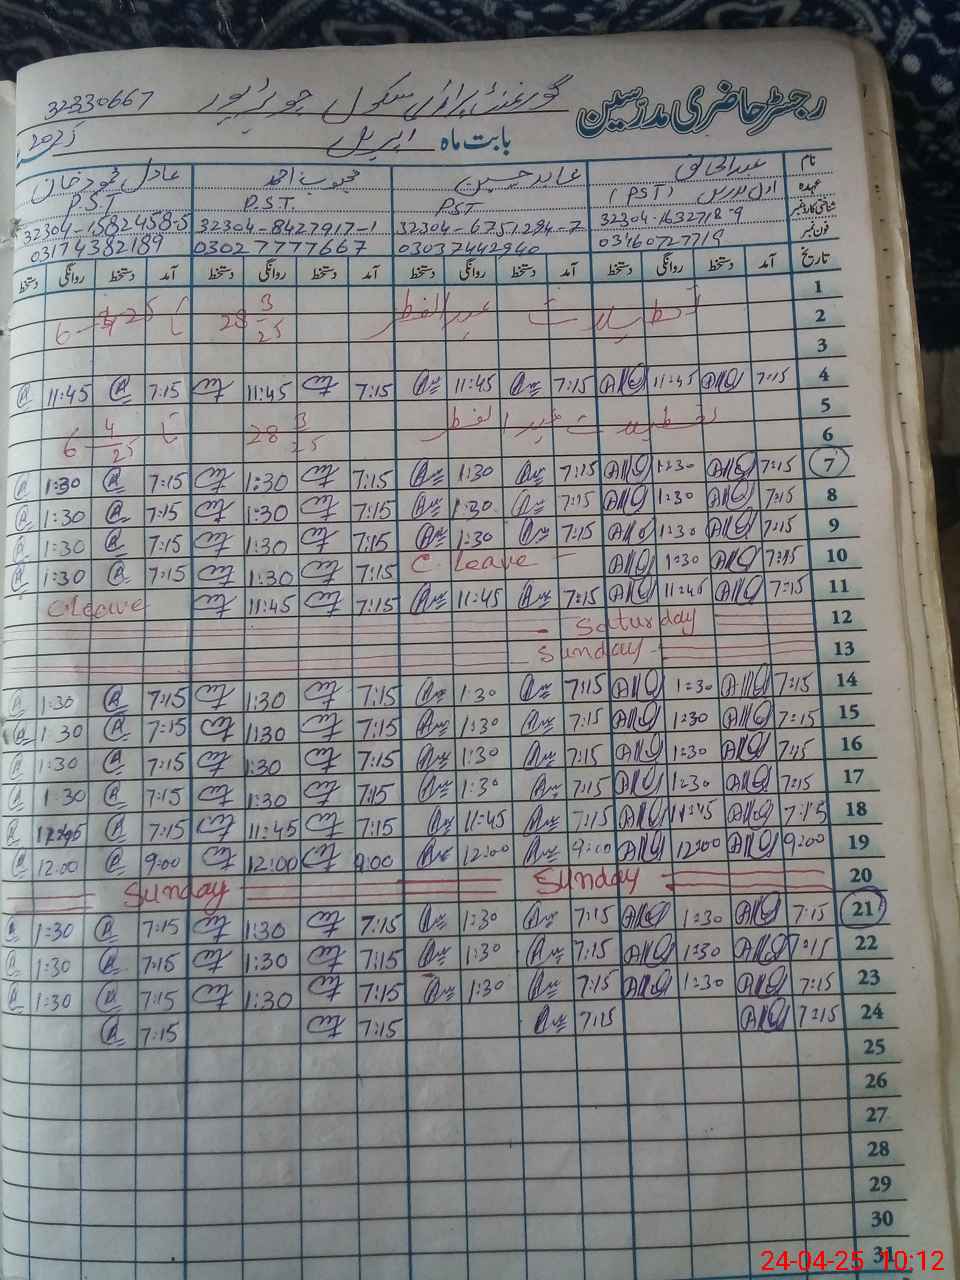 رجسٹر حاضری مدرسین گورنمنٹ پرائمری سکول 32330667
بابت ماہ اپریل 2025
نام عبدالخالق عابد حسین محبوب احمد عادل محمود خان
عہدہ (PST) اول مدرس PST P.S.T. PST
شناختی کارڈ نمبر 32304-1632718-9 32304-6751294-7 32304-8427917-1 32304-1582458-5
فون نمبر 03460727719 03037442940 03027777667 03174382189
تاریخ آمد دستخط روانگی دستخط آمد دستخط روانگی دستخط آمد دستخط روانگی دستخط آمد دستخط روانگی دستخط
1
2 تعطیلات عید الفطر 28 3/25 تا 6-4-25
3
4 7:15 11:45 7:15 11:45 7:15 11:45 7:15 11:45
5
6 تعطیلات عید الفطر 28 3/25 تا 6 4/25
7 7:15 1:30 7:15 1:30 7:15 1:30 7:15 1:30
8 7:15 1:30 7:15 1:30 7:15 1:30 7:15 1:30
9 7:15 1:30 7:15 1:30 7:15 1:30 7:15 1:30
10 7:15 1:30 C. leave 7:15 1:30 7:15 1:30
11 7:15 11:45 7:15 11:45 7:15 11:45 C. leave
12 Saturday
13 Sunday
14 7:15 1:30 7:15 1:30 7:15 1:30 7:15 1:30
15 7:15 1:30 7:15 1:30 7:15 1:30 7:15 1:30
16 7:15 1:30 7:15 1:30 7:15 1:30 7:15 1:30
17 7:15 1:30 7:15 1:30 7:15 1:30 7:15 1:30
18 7:15 11:45 7:15 11:45 7:15 11:45 7:15
19 9:00 12:00 9:00 12:00 9:00 12:00 9:00 12:00
20 Sunday Sunday
21 7:15 1:30 7:15 1:30 7:15 1:30 7:15 1:30
22 7:15 1:30 7:15 1:30 7:15 1:30 7:15 1:30
23 7:15 1:30 7:15 1:30 7:15 1:30 7:15 1:30
24 7:15 7:15 7:15 7:15
25
26
27
28
29
30
31
24-04-25 10:12